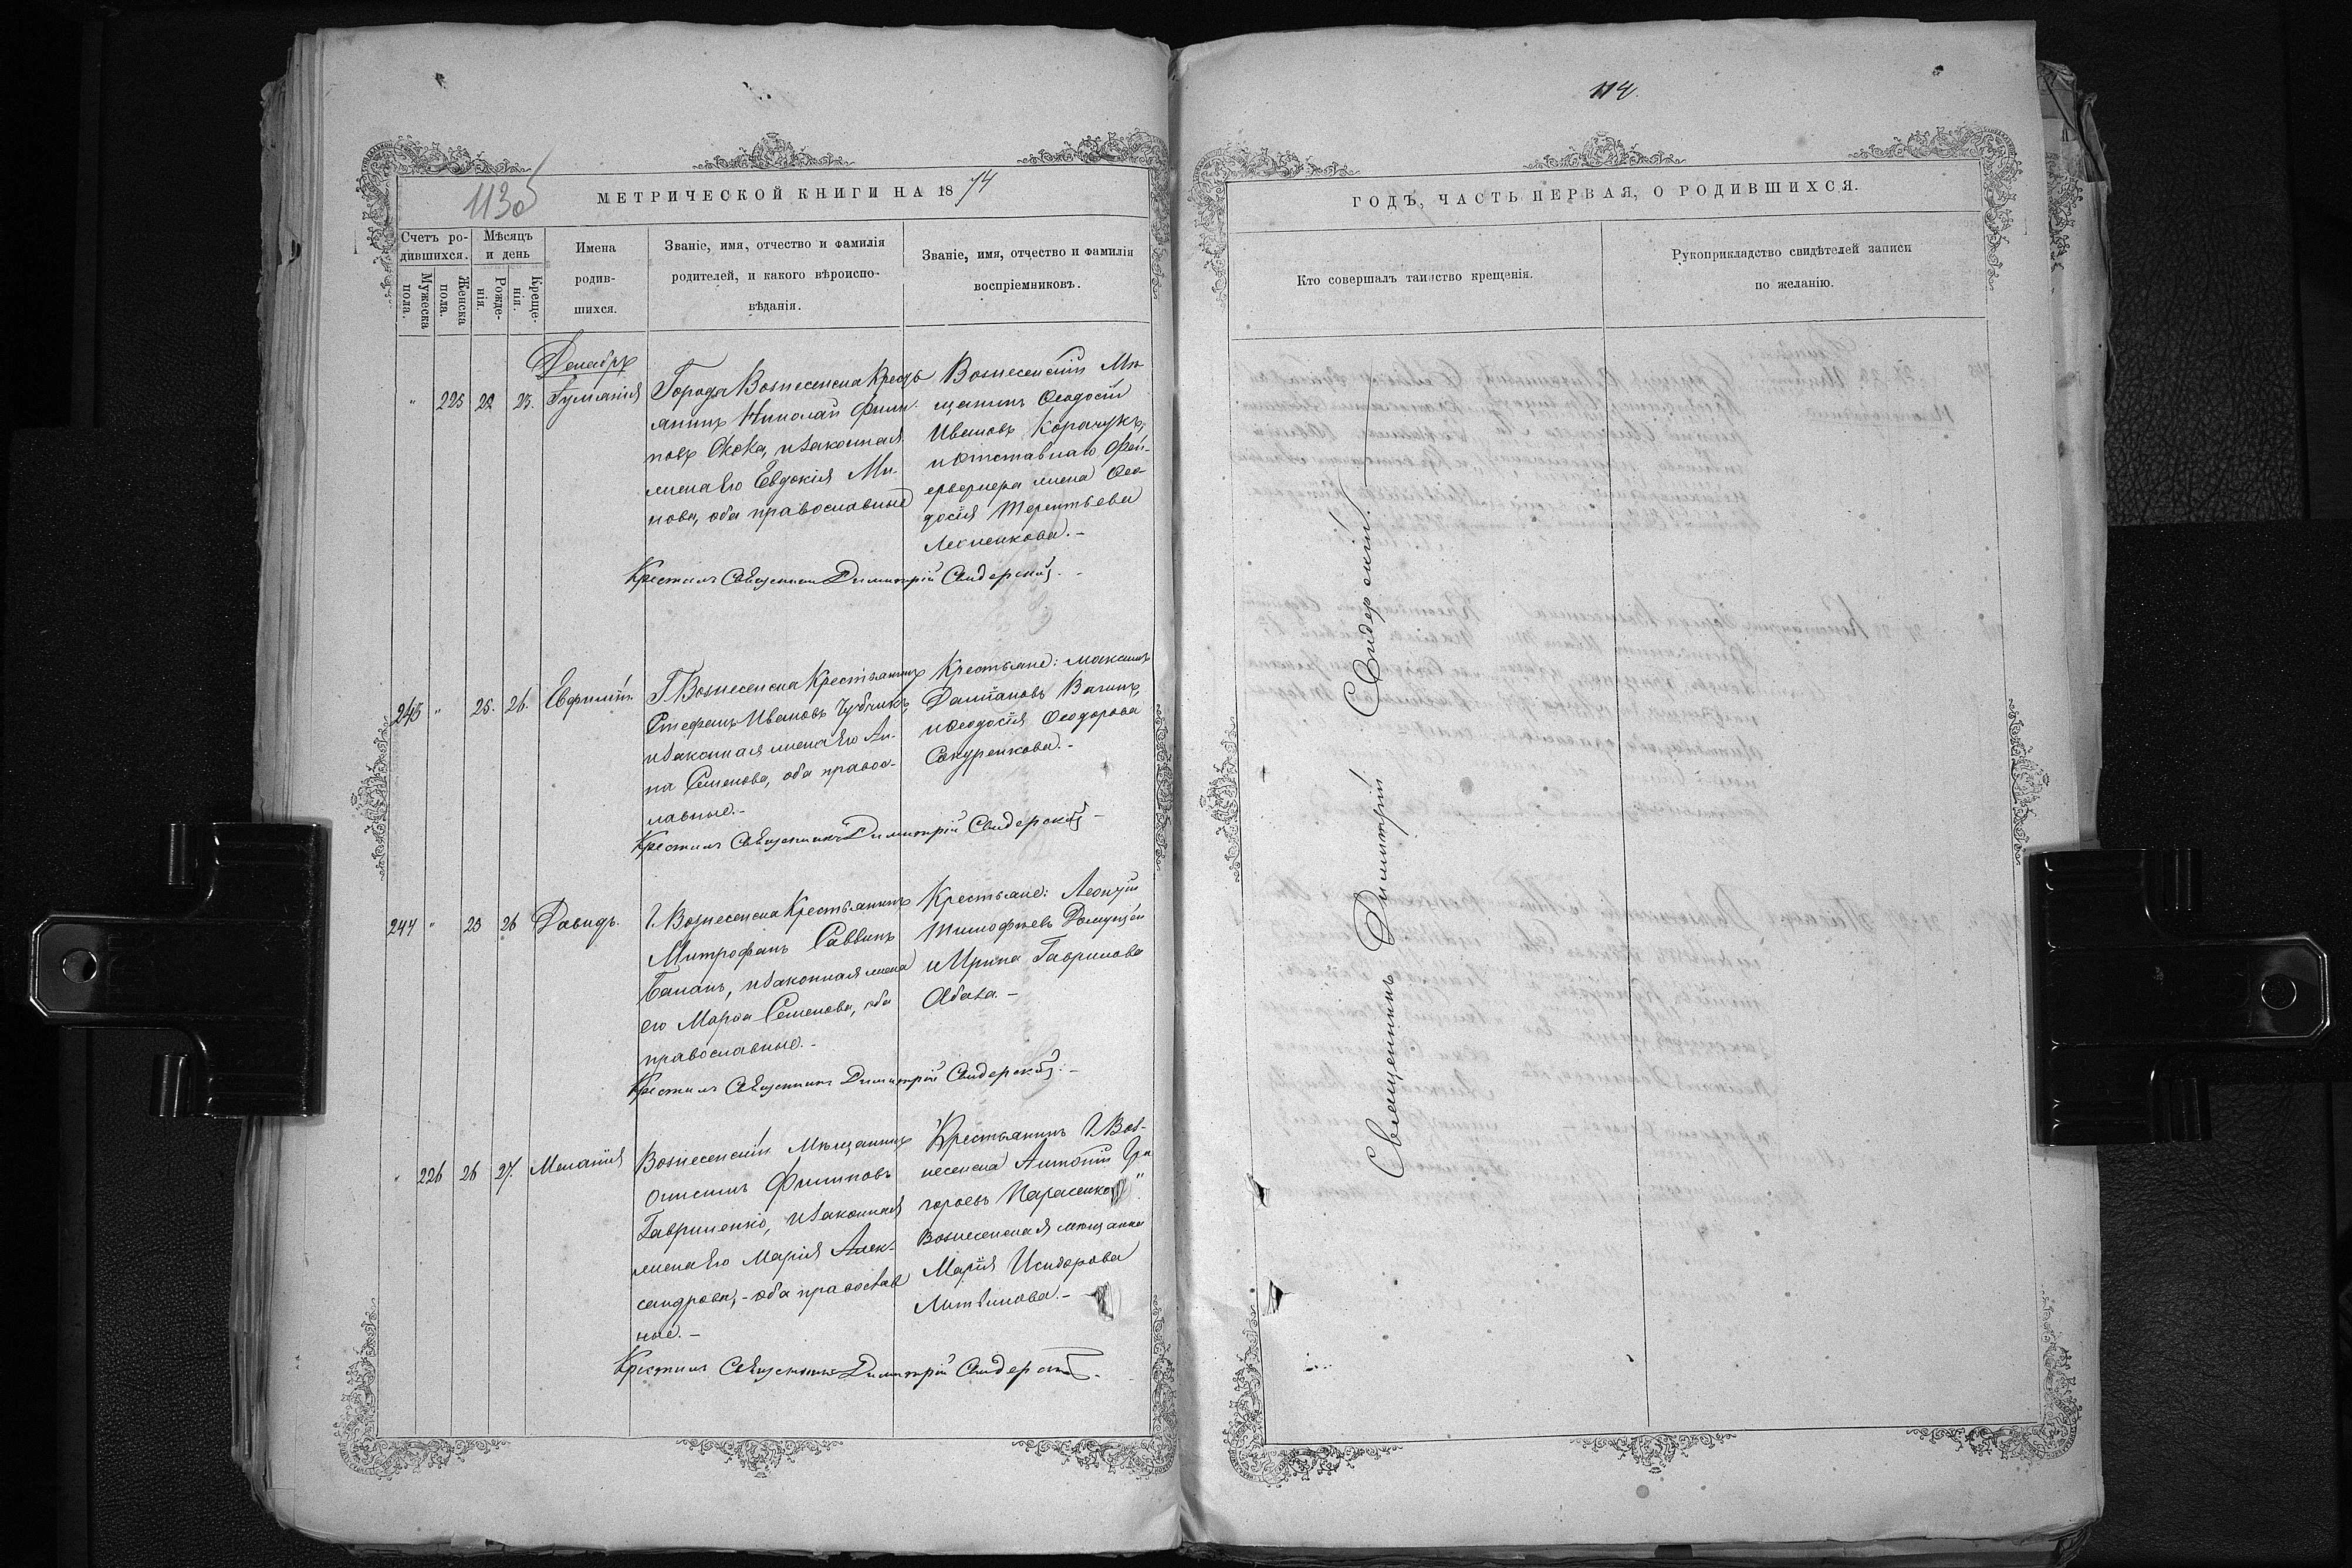 113об
МЕТРИЧЕСКОЙ КНИГИ НА 1874
Счетъ ро-
дившихся.
Мужеска
пола.
Женска
пола.
Мѣсяцъ
и день
Рожде-
нія.
Креще-
нія.
Имена
родив-
шихся.
Званіе, имя, отчество и фамилія
родителей, и какого вѣроиспо-
вѣданія.
Званіе, имя, отчество и фамилія
воспріемниковъ.
Декабрь
" 225 22 23. Іуліанія
Города Вознесенска Крестья
нинъ Николай Филип
повъ Окока, и законная
жена его Евдокія Ми-
нова, оба православные
Вознесенскій Мѣ
щанинъ Ѳеодосій
Ивановъ Корачукъ,
и отставнаго Фей-
ерверкера жена Ѳео-
досія Терентьева
Лекненкова.-
Крестилъ Священникъ Димитрій Свидерскій.-
243 " 25. 26. Евфимій
Г Вознесенска Крестьянинъ
Стефанъ Ивановъ Чубчикъ,
и законная жена его Ан-
на Семенова, оба правос-
лавные.-
Крестьяне: Максимъ
Даміановъ Вагинъ,
и Ѳеодосія Ѳеодорова
Сакуренкова.-
Крестилъ Священникъ Димитрій Свидерскій-
244 " 23 26 Давидъ.
Г. Вознесенска Крестьянинъ
Митрофанъ Саввинъ
Баланъ, и законная жена
его Марѳа Семенова, оба
православные.-
Крестьяне: Леонтій
Тимофѣевъ Домущей
и Ирина Гаврилова
Абаза.-
Крестилъ Священникъ Димитрій Свидерскій.-
" 226 26 27. Меланія
Вознесенскій Мѣщанинъ
Онисимъ Филиповъ
Гавриленко, и законная
жена его Марія Алек-
сандрова,- оба православ
ные.-
Крестьянинъ Г Воз-
несенска Антоній Гри
горьевъ Парасенко,
Вознесенская мѣщанка
Марія Исидорова
Литвинова.-
Крестилъ Священникъ Димитрій Свидерскій.
114.
ГОДЪ, ЧАСТЬ ПЕРВАЯ, О РОДИВШИХСЯ.
Кто совершалъ таинство крещенія.
Рукоприкладство свидѣтелей записи
по желанію.
Священникъ Димитрій Свидерскій.